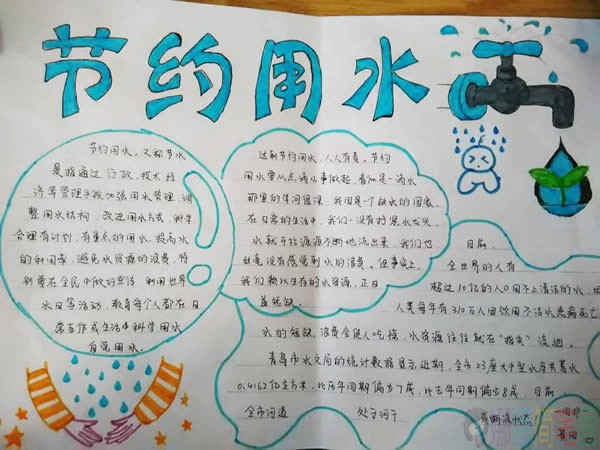 节约用水
节约用水,又称节水
是指通过行政、技术经
济等管理手段加强用水管理,调
整用水结构,改进用水方式,科学
合理有计划,有重点的用水,提高水
的利用率,避免水资源的浪费。特
别要在全民中做好宣传,利用世界
水日等活动,教育每个人都在日
常工作或生活中科学用水
自觉用水。
达到节约用水,人人有责。节约
用水要从点滴小事做起,看似是一滴水
那里的学问很深,我国是个缺水的国家,
在日常的生活中,我们一没有拧紧水龙头
水就开始源源不断地流出来,我们也
丝毫没有感觉到水的浪费。但事实上,
我们赖以生存的水资源,正日
益短缺。
目前
全世界的人有
超过10亿的人口用不上清洁的水,
人类每年有310万人因饮用不洁水患病死亡
水的短缺,浪费会使人吃惊,水资源往往就在“指尖”流逝。
青岛市水文局的统计数据显示,近期,全市23座大中型水库共蓄水
0.4162亿立方米,比历年同期偏少7成,比去年同期偏少8成,目前
全市河道 处于河干 或断流状态